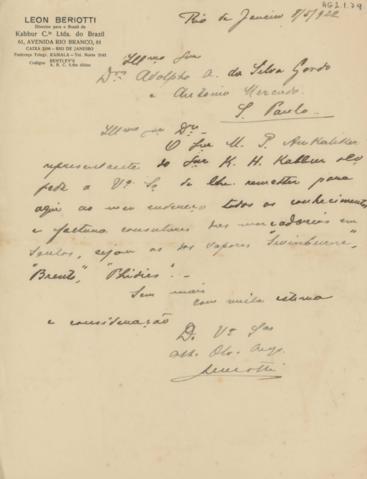 AG2.1.79
LEON BERIOTTI
Director para o Brazil da
Kabbur C.ia Ltda. do Brazil
61, AVENIDA RIO BRANCO, 61
RIO DE JANEIRO
Endereço Telegr. Tel. Norte
Codigos BENTLEY'S
A. B. C. 5.th Edition
Rio de Janeiro 1922
Illmos Snrs
Drs Adolpho A. da Silva Gordo
e Antonio Mercado
S. Paulo
Illmos Drs
O Snr M. P.
representante do Snr K. H. Kabbur
pede a V.as S.as de lhe remetter para
aqui ao meu endereço todos os conhecimentos
e factura consulares das mercadorias em
Santos, sejam as dos vapores "Swinburne",
"Brento", "Phidias".-
Sem mais
com muita estima
e consideração
De V.as Sas
Att. Obr.
Beriotti